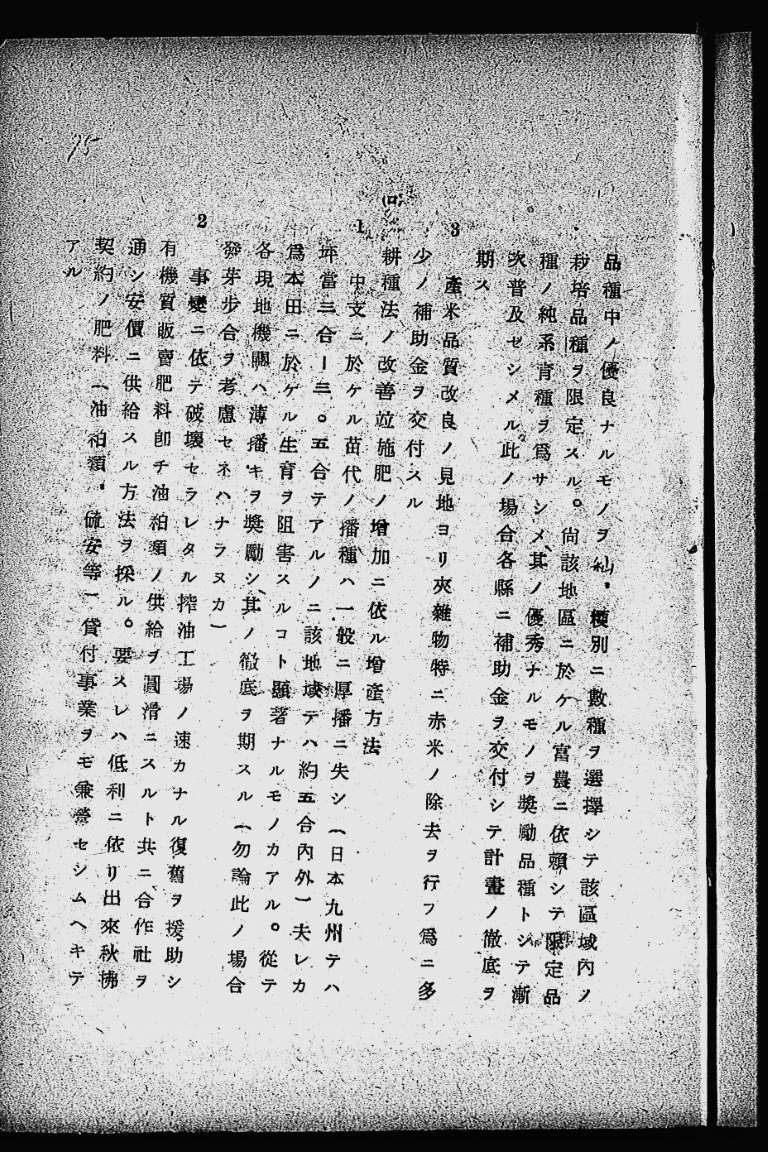 品種中ノ優良ナルモノヲ秈、糯別ニ數種ヲ選擇シテ該區域內ノ
栽培品種ヲ限定スル。尙該地區ニ於ケル富農ニ依賴シテ限定品
種ノ純系育種ヲ爲サシメ、其ノ優秀ナルモノヲ奬勵品種トシテ漸
次普及セシメル此ノ場合各縣ニ補助金ヲ交付シテ計畫ノ徹底ヲ
期ス
3 產米品質改良ノ見地ヨリ夾雜物特ニ赤米ノ除去ヲ行フ爲ニ多
少ノ補助金ヲ交付スル
(ロ) 耕種法ノ改善竝施肥ノ增加ニ依ル增產方法
1 中支ニ於ケル苗代ノ播種ハ一般ニ厚播ニ失シ(日本九州テハ
坪當三合ー三。五合テアルノニ該地域テハ約五合內外)夫レカ
爲本田ニ於ケル生育ヲ阻害スルコト顯著ナルモノカアル。從テ
各現地機關ハ薄播キヲ奬勵シ、其ノ徹底ヲ期スル(勿論此ノ場合
發芽步合ヲ考慮セネハナラヌカ)
2 事變ニ依テ破壞セラレタル搾油工場ノ速カナル復舊ヲ援助シ
有機質販賣肥料卽チ油粕類ノ供給ヲ圓滑ニスルト共ニ合作社ヲ
通シ安價ニ供給スル方法ヲ採ル。要スレハ低利ニ依リ出來秋拂
契約ノ肥料(油粕類、硫安等)貸付事業ヲモ兼營セシムヘキテ
アル
75